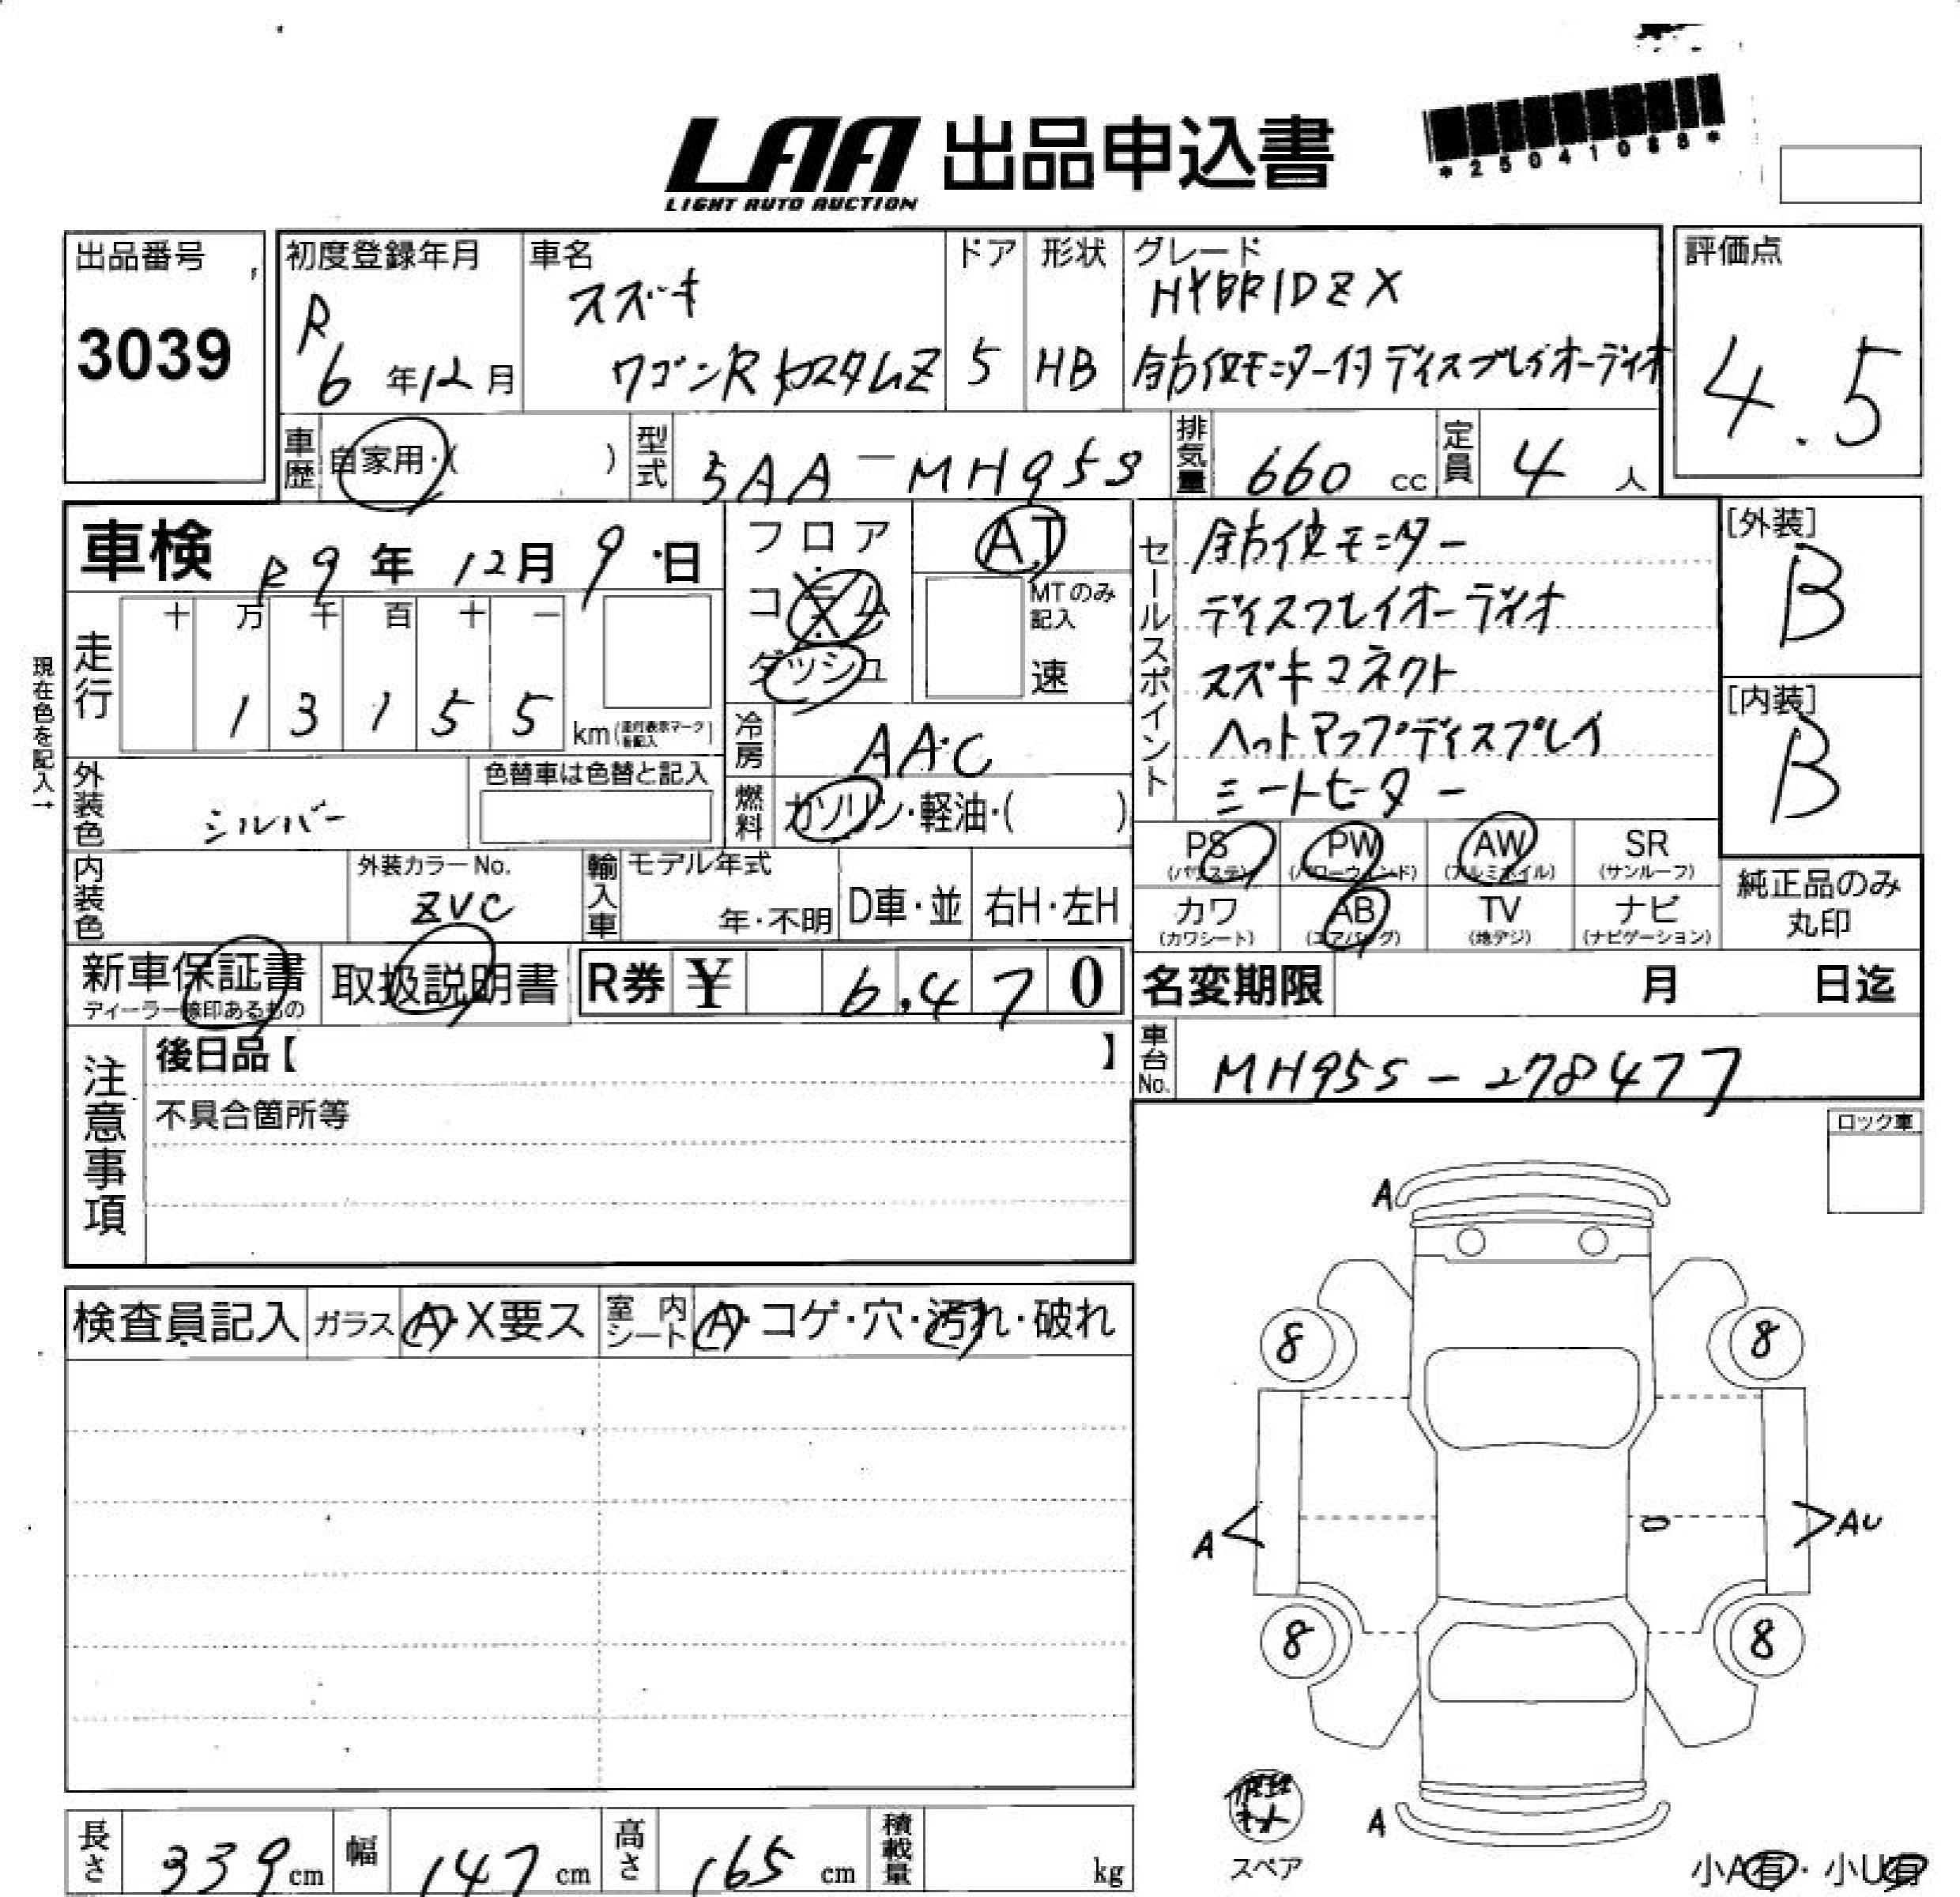 LAA 出品申込書
LIGHT AUTO AUCTION
*25041088*
出品番号
3039
初度登録年月
R
6 年 12 月
車名
スズキ
ワゴンRカスタムZ
ドア
5
形状
HB
グレード
HYBRID ZX
全方位モニター付ディスプレイオーディオ
評価点
4.5
車歴 自家用・( )
型式 5AA-MH95S
排気量 660 cc
定員 4 人
車検 R9年 12月 9日
現在色を記入→
走行
十 万 千 百 十 一
1 3 1 5 5
km(走行表示マークを記入)
フロア
コラム
ダッシュ
AT
MTのみ記入
速
セールスポイント
全方位モニター
ディスプレイオーディオ
スズキコネクト
ヘットアップディスプレイ
シートヒーター
[外装]
B
[内装]
B
冷房 AAC
外装色 シルバー
色替車は色替と記入
燃料 ガソリン・軽油・( )
PS (パワステ)
PW (パワーウィンド)
AW (アルミホイル)
SR (サンルーフ)
カワ (カワシート)
AB (エアバッグ)
TV (地デジ)
ナビ (ナビゲーション)
純正品のみ
丸印
内装色
外装カラーNo.
ZVC
輸入車
モデル年式
年・不明
D車・並
右H・左H
新車保証書
ディーラー捺印あるもの
取扱説明書
R券 ¥ 6,470
名変期限 月 日迄
車台No. MH95S-278477
注意事項
後日品【 】
不具合箇所等
ロック車
検査員記入
ガラス A・X要ス
室内シート A・コゲ・穴・汚れ・破れ
A
8 8
A
AU
8 8
A
修理キット
スペア
小A有・小U有
長さ 339 cm
幅 147 cm
高さ 165 cm
積載量 kg